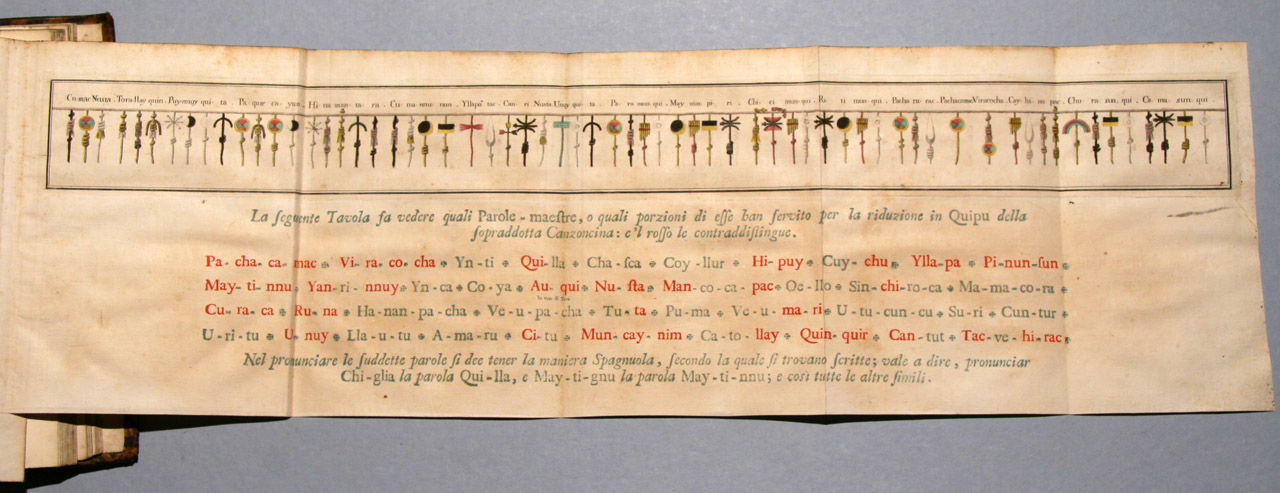 Cumac Nusta. Tora-llay quin. Puy-nuuy qui- ta. Pa- quir ca- ytin. Hi- na man- ta- ra. Cu- nu- nun- nun. Ylla-pa- tac. Can- ri Nusta Unuy qui- ta. Pa- ra mun- qui. May- nim- pi- ri. Chi- chi mun- qui. Ri- ti mun- qui. Pacha ru- rac. Pachacamac. Viracocha. Cay- hi- na- pac. Chu- ra- sun- qui. Ca- ma- sun- qui.
La seguente Tavola fa vedere quali Parole-maestre, o quali porzioni di esse han servito per la riduzione in Quipu della
sopraddotta Canzoncina: e'l rosso le contraddistingue.
Pa-cha-ca-mac Vi-ra-co-cha Yn-ti Qui-lla Cha-sca Coy-llur Hi-puy Cuy-chu Ylla-pa Pi-nun-sun
May-ti-nnu Yan-ri-nnuy Yn-ca Co-ya Au-qui Nu-sta Man-co-ca-pac Oe-llo Sin-chi-ro-ca Ma-ma-co-ra
Cu-ra-ca Ru-na Ha-nan-pa-cha Ve-u-pa-cha Tu-ta Pu-ma Ve-u-ma-ri U-tu-cun-cu Su-ri Cun-tur
U-ri-tu U-nuy Lla-u-tu A-ma-ru Ci-tu Mun-cay-nim Ca-to-llay Quin-quir Can-tut Tac-ve-hi-rac
Nel pronunciare le suddette parole si dee tener la maniera Spagnuola, secondo la quale si trovano scritte; vale a dire, pronunciar
Chi-glia la parola Qui-lla, e May-ti-gnu la parola May-ti-nnu; e così tutte le altre simili.